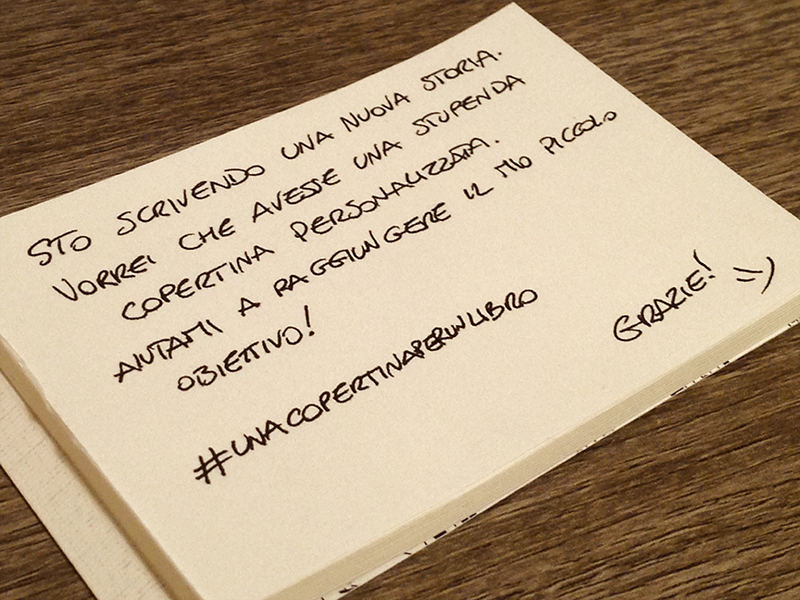 STO SCRIVENDO UNA NUOVA STORIA.
VORREI CHE AVESSE UNA STUPENDA
COPERTINA PERSONALIZZATA.
AIUTAMI A RAGGIUNGERE IL MIO PICCOLO
OBIETTIVO!
GRAZIE! =)
#UNACOPERTINAPERUNLIBRO